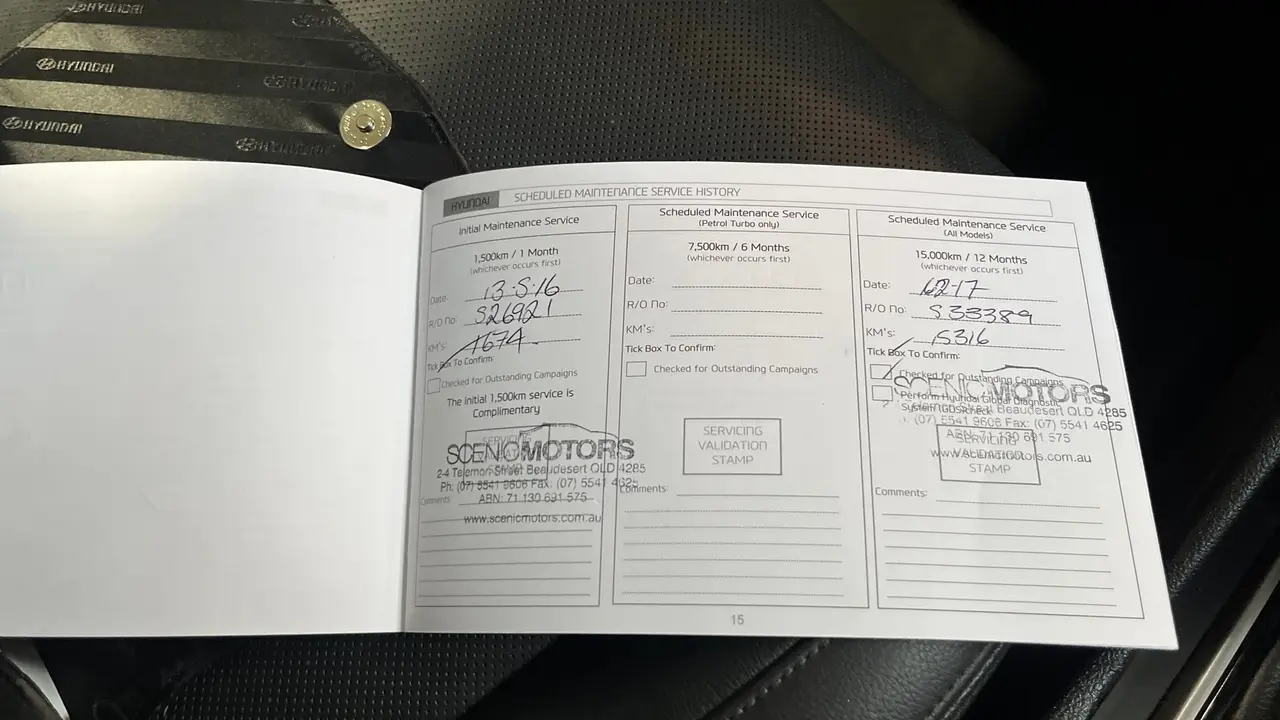 HYUNDAI
HYUNDAI
HYUNDAI
HYUNDAI
HYUNDAI
HYUNDAI SCHEDULED MAINTENANCE SERVICE HISTORY
Initial Maintenance Service
1,500km / 1 Month
(whichever occurs first)
Date: 13·5·16
R/O No: S26921
KM's: 1674
Tick Box To Confirm:
Checked for Outstanding Campaigns
The initial 1,500km service is
Complimentary
SCENIC MOTORS
2-4 Telemon Street Beaudesert QLD 4285
Ph: (07) 5541 9606 Fax: (07) 5541 4625
ABN: 71 130 691 575
www.scenicmotors.com.au
Comments:
Scheduled Maintenance Service
(Petrol Turbo only)
7,500km / 6 Months
(whichever occurs first)
Date:
R/O No:
KM's:
Tick Box To Confirm:
Checked for Outstanding Campaigns
SERVICING
VALIDATION
STAMP
Comments:
Scheduled Maintenance Service
(All Models)
15,000km / 12 Months
(whichever occurs first)
Date:
R/O No: S33389
KM's: 15316
Tick Box To Confirm:
Checked for Outstanding Campaigns
Perform Hyundai Global Diagnostic
System (GDS) check
SCENIC MOTORS
Telemon Street Beaudesert QLD 4285
(07) 5541 9606 Fax: (07) 5541 4625
ABN: 71 130 691 575
www.scenicmotors.com.au
SERVICING
VALIDATION
STAMP
Comments:
15